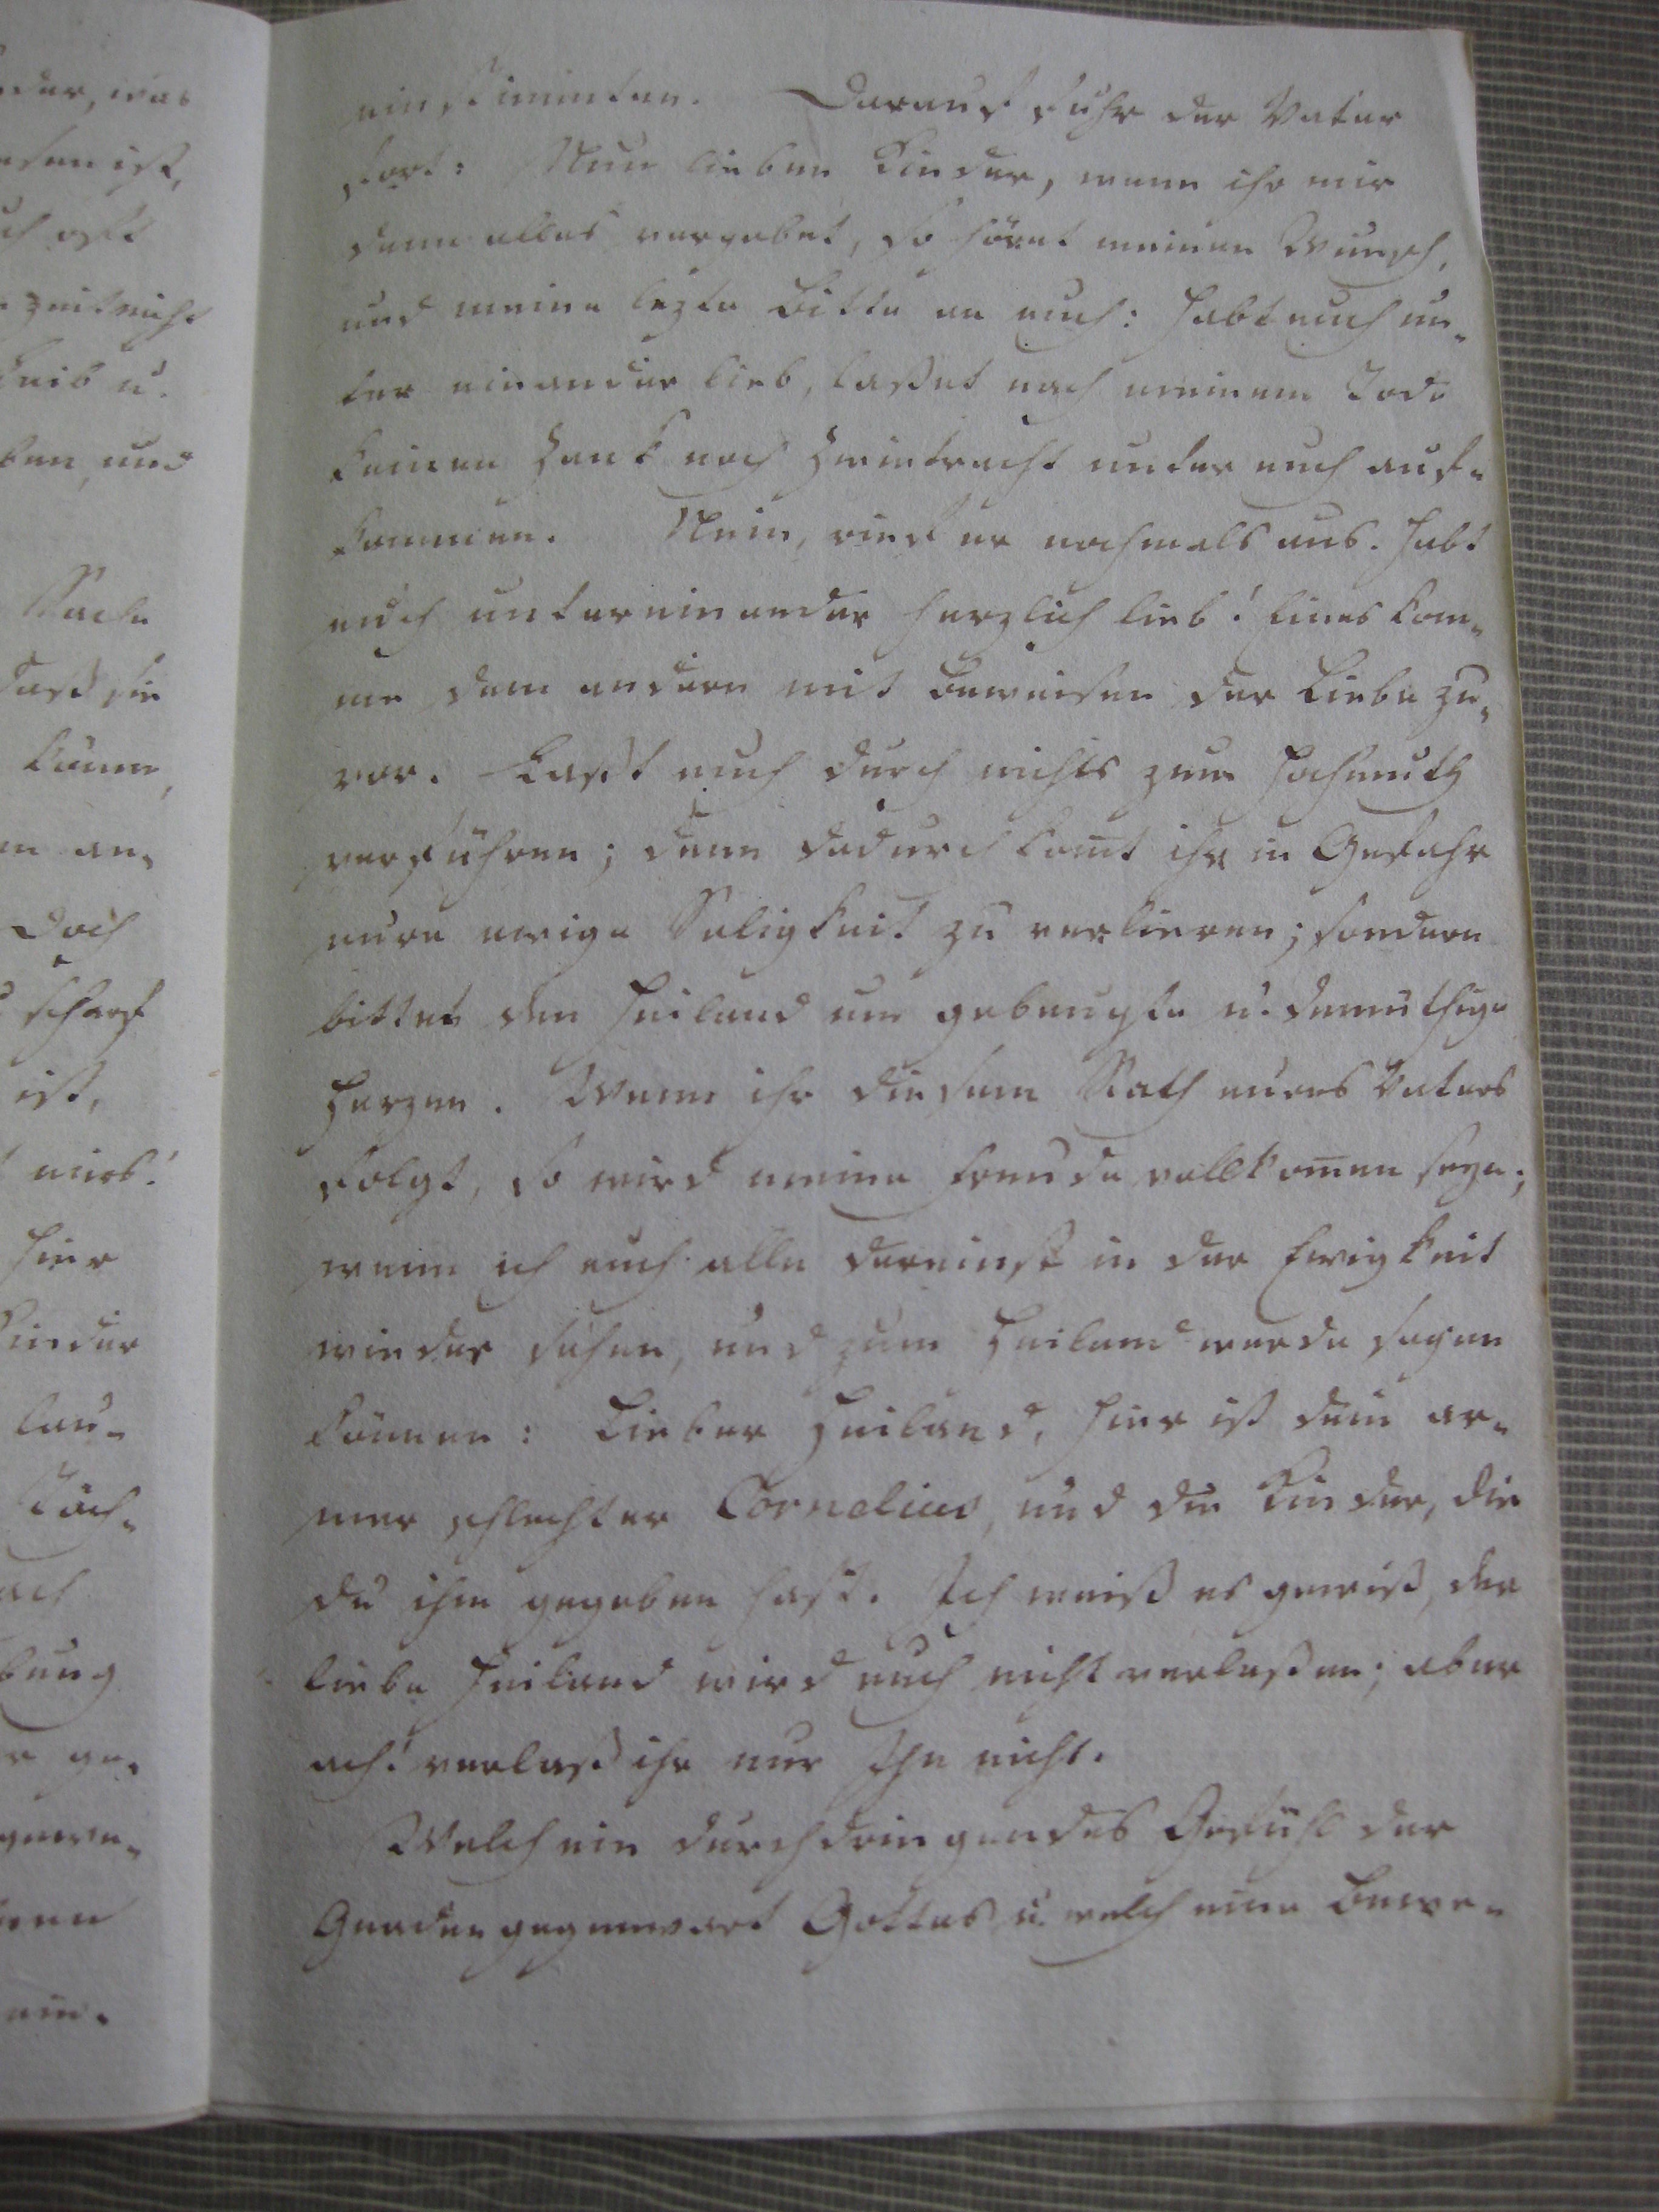 einstimmten. Darauf fuhr der Vater
fort: Nun lieben Kinder, wenn ihr mir
denn alles vergebet, so höret meinen Wunsch,
und meine lezte Bitte an euch: habt euch un-
ter einander lieb, laßet nach meinem Tode
keinen Zank noch Zwietracht unter euch auf-
kommen. Nein, rief er nochmals aus. habt
euch untereinander herzlich lieb! Eines kom-
me dem andern mit Beweisen der Liebe zu-
vor. Laßt euch durch nichts zum Hochmuth
verführen; denn dadurch kom̄t ihr in Gefahr
eure ewige Seligkeit zu verlieren; sondern
bittet den Heiland um gebeugte u. demüthige
Herzen. Wenn ihr diesem Rath eures Vaters
folgt, so wird meine Freude vollkom̄en seyn;
wenn ich euch alle dereinst in der Ewigkeit
wieder sehen, und zum Heiland werde sagen
können: Lieber Heiland, hier ist dein ar-
mer schlechter Cornelius, und die Kinder, die
du ihm gegeben hast. Ich weiß es gewiß, der
liebe Heiland wird euch nicht verlaßen; aber
ach! verlaßt ihr nur Ihn nicht.
Welch ein durchdringendes Gefühl der
Gnadengegenwart Gottes u. welch eine Bewe-